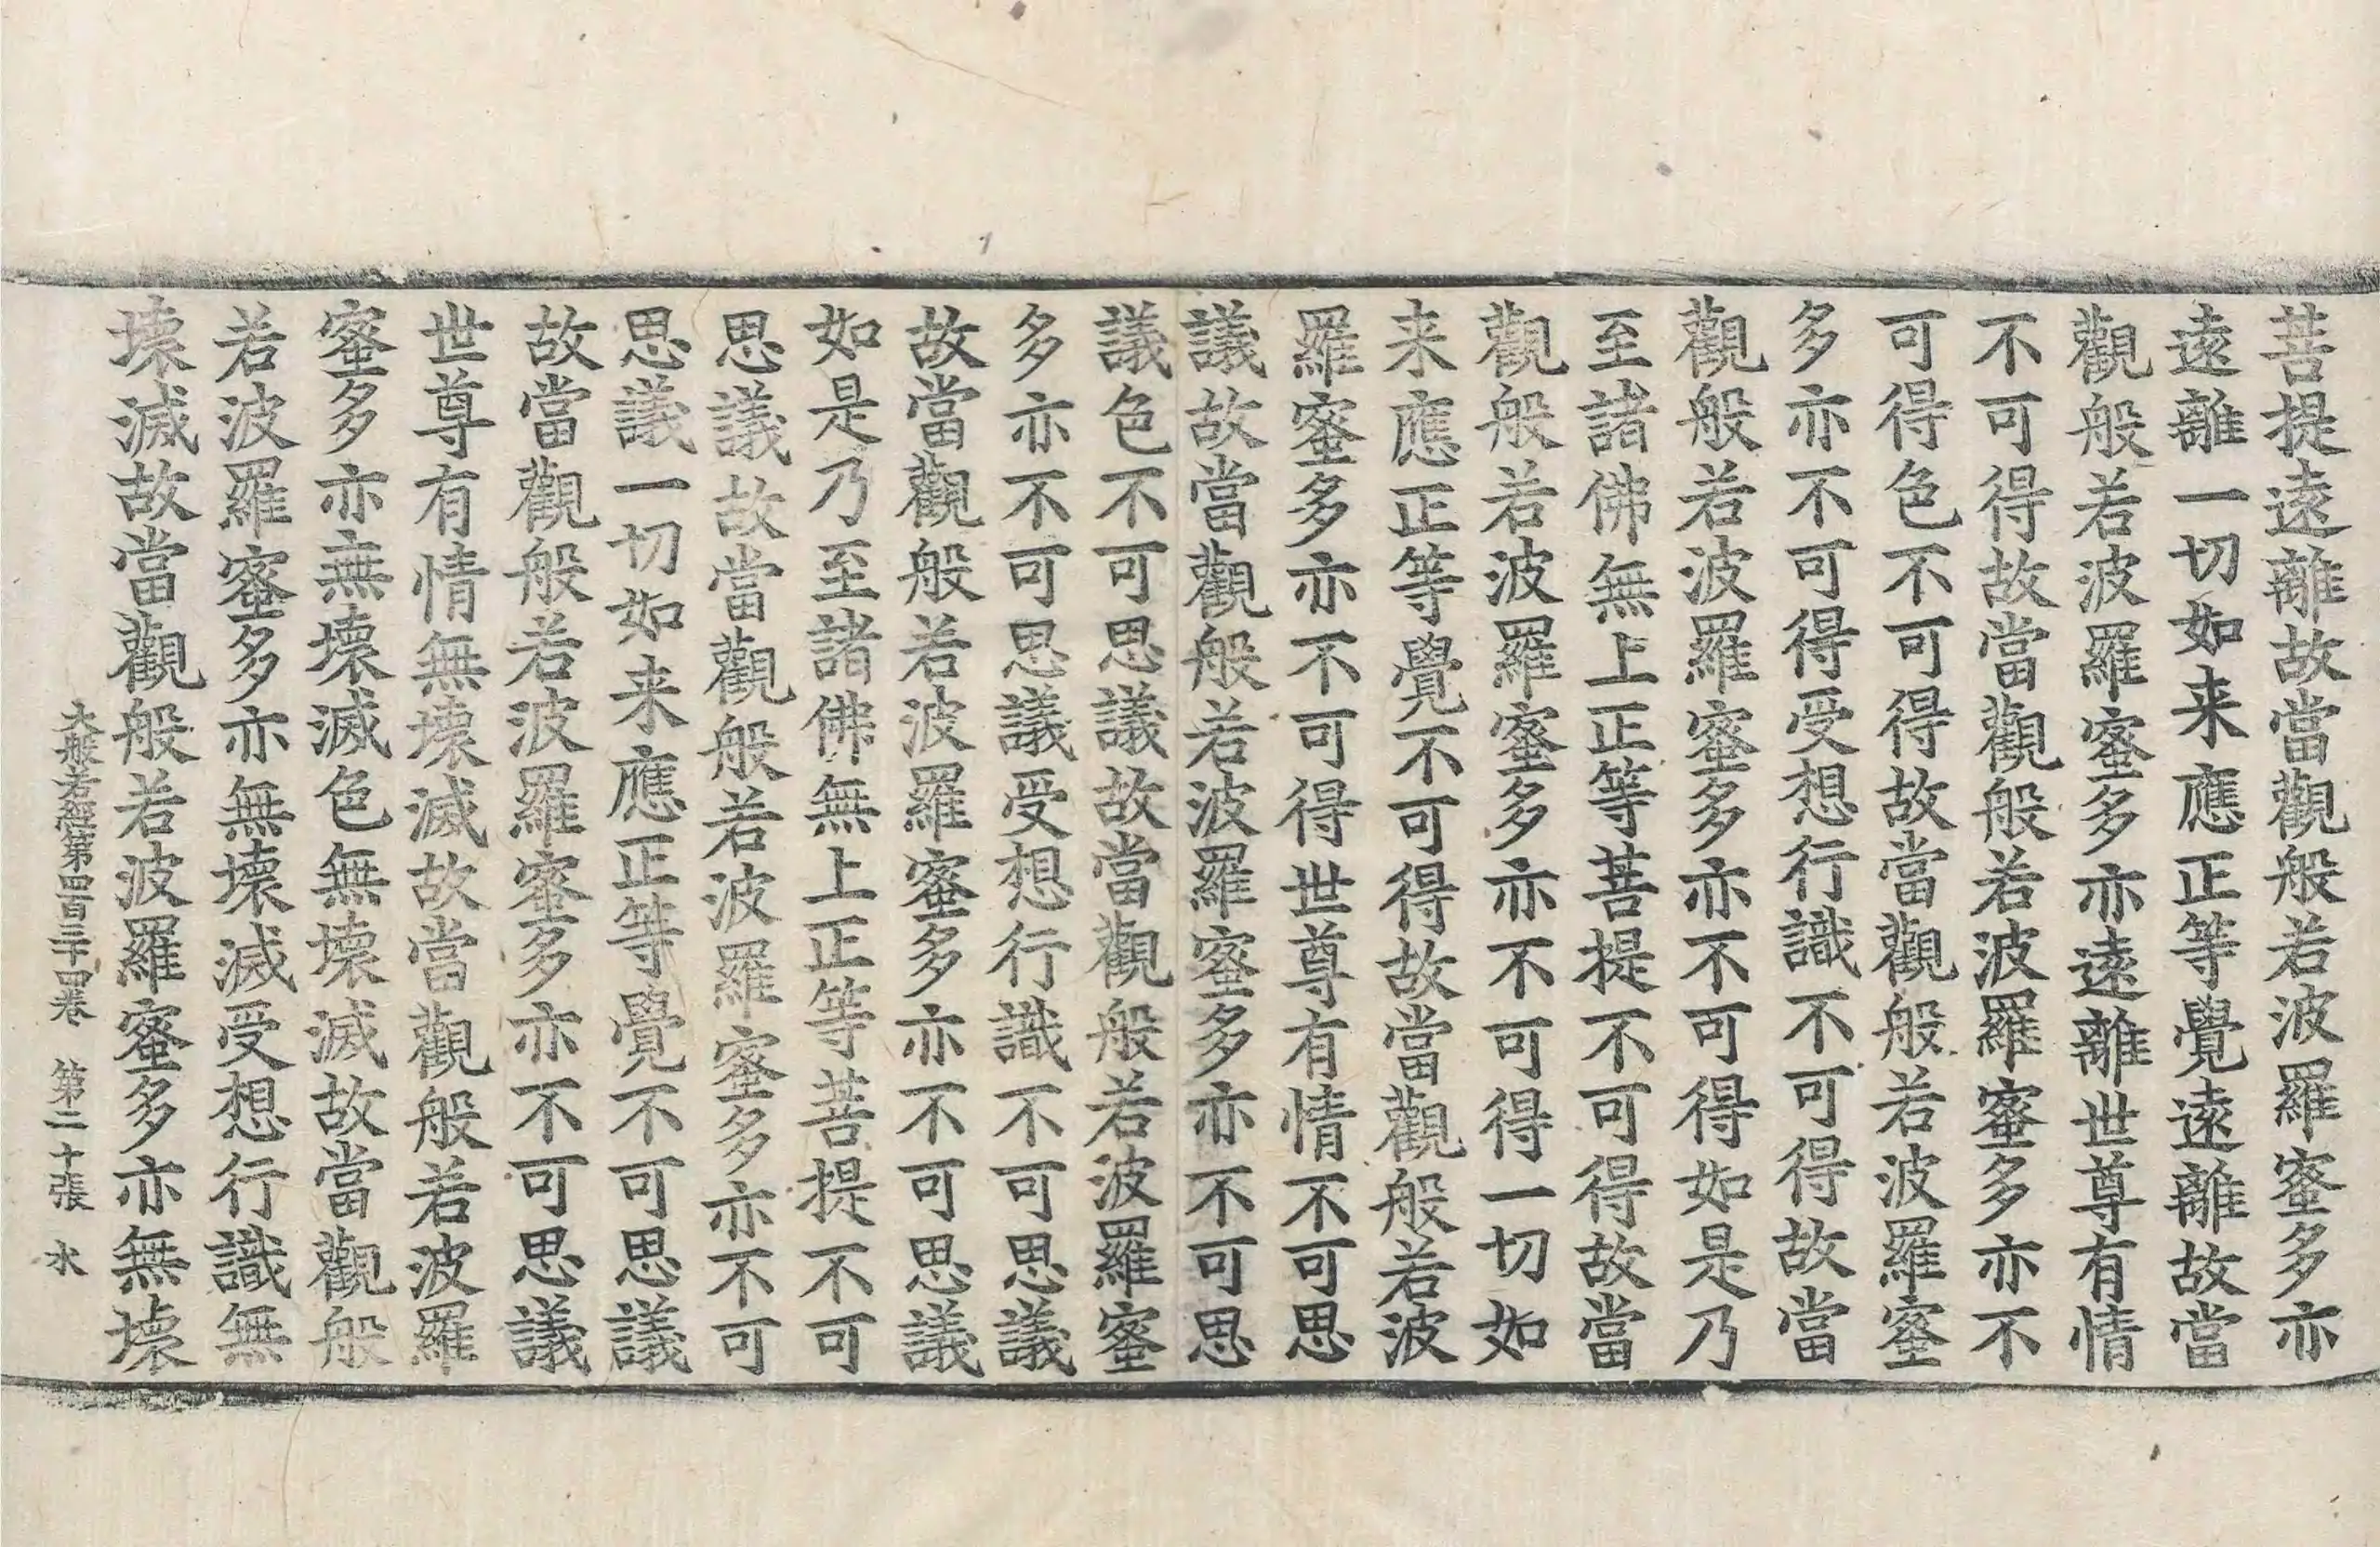 菩提遠離故當觀般若波羅蜜多亦
遠離一切如来應正等覺遠離故當
觀般若波羅蜜多亦遠離世尊有情
不可得故當觀般若波羅蜜多亦不
可得色不可得故當觀般若波羅蜜
多亦不可得受想行識不可得故當
觀般若波羅蜜多亦不可得如是乃
至諸佛無上正等菩提不可得故當
觀般若波羅蜜多亦不可得一切如
来應正等覺不可得故當觀般若波
羅蜜多亦不可得世尊有情不可思
議故當觀般若波羅蜜多亦不可思
議色不可思議故當觀般若波羅蜜
多亦不可思議受想行識不可思議
故當觀般若波羅蜜多亦不可思議
如是乃至諸佛無上正等菩提不可
思議故當觀般若波羅蜜多亦不可
思議一切如来應正等覺不可思議
故當觀般若波羅蜜多亦不可思議
世尊有情無壞滅故當觀般若波羅
蜜多亦無壞滅色無壞滅故當觀般
若波羅蜜多亦無壞滅受想行識無
壞滅故當觀般若波羅蜜多亦無壞
大般若經第四百三十四卷 第二十張 水